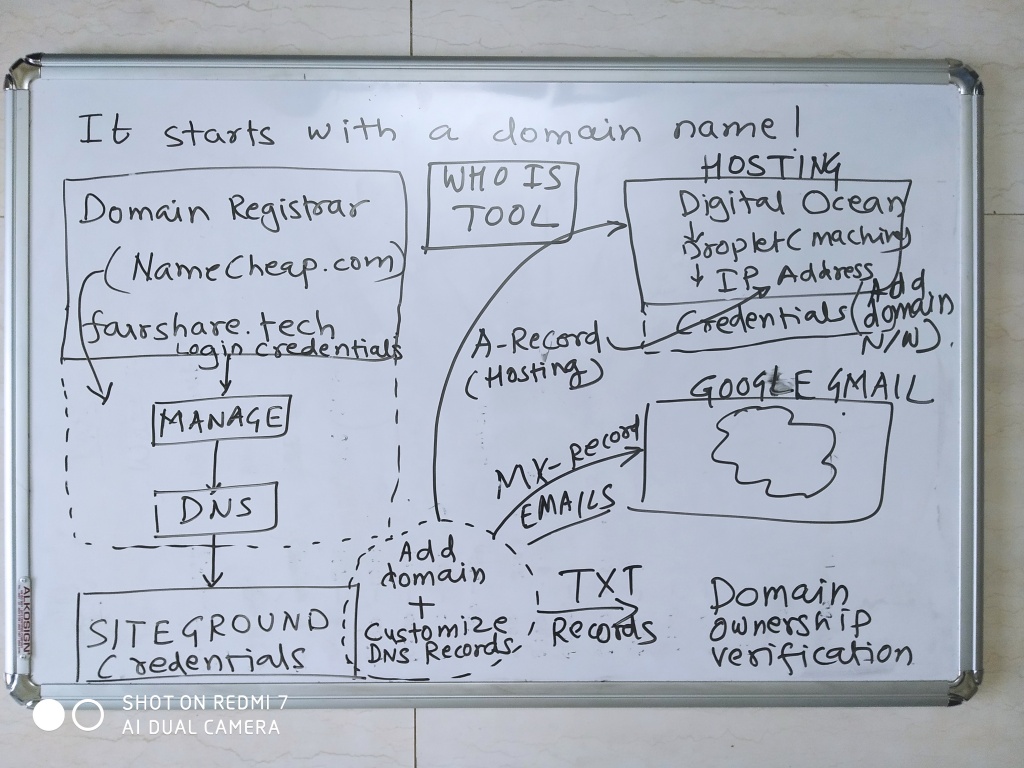 It starts with a domain name!
Domain Registrar
(NameCheap.com)
fairshare.tech
Login credentials
MANAGE
DNS
SITEGROUND
Credentials
Add
domain
+
Customize
DNS Records
WHO IS
TOOL
HOSTING
Digital Ocean
Droplet (machine)
IP Address
Credentials (Add
domain
N/W).
A-Record
(Hosting)
GOOGLE GMAIL
MX-Record
EMAILS
TXT
Records
Domain
ownership
verification
ALKOSIGN
SHOT ON REDMI 7
AI DUAL CAMERA